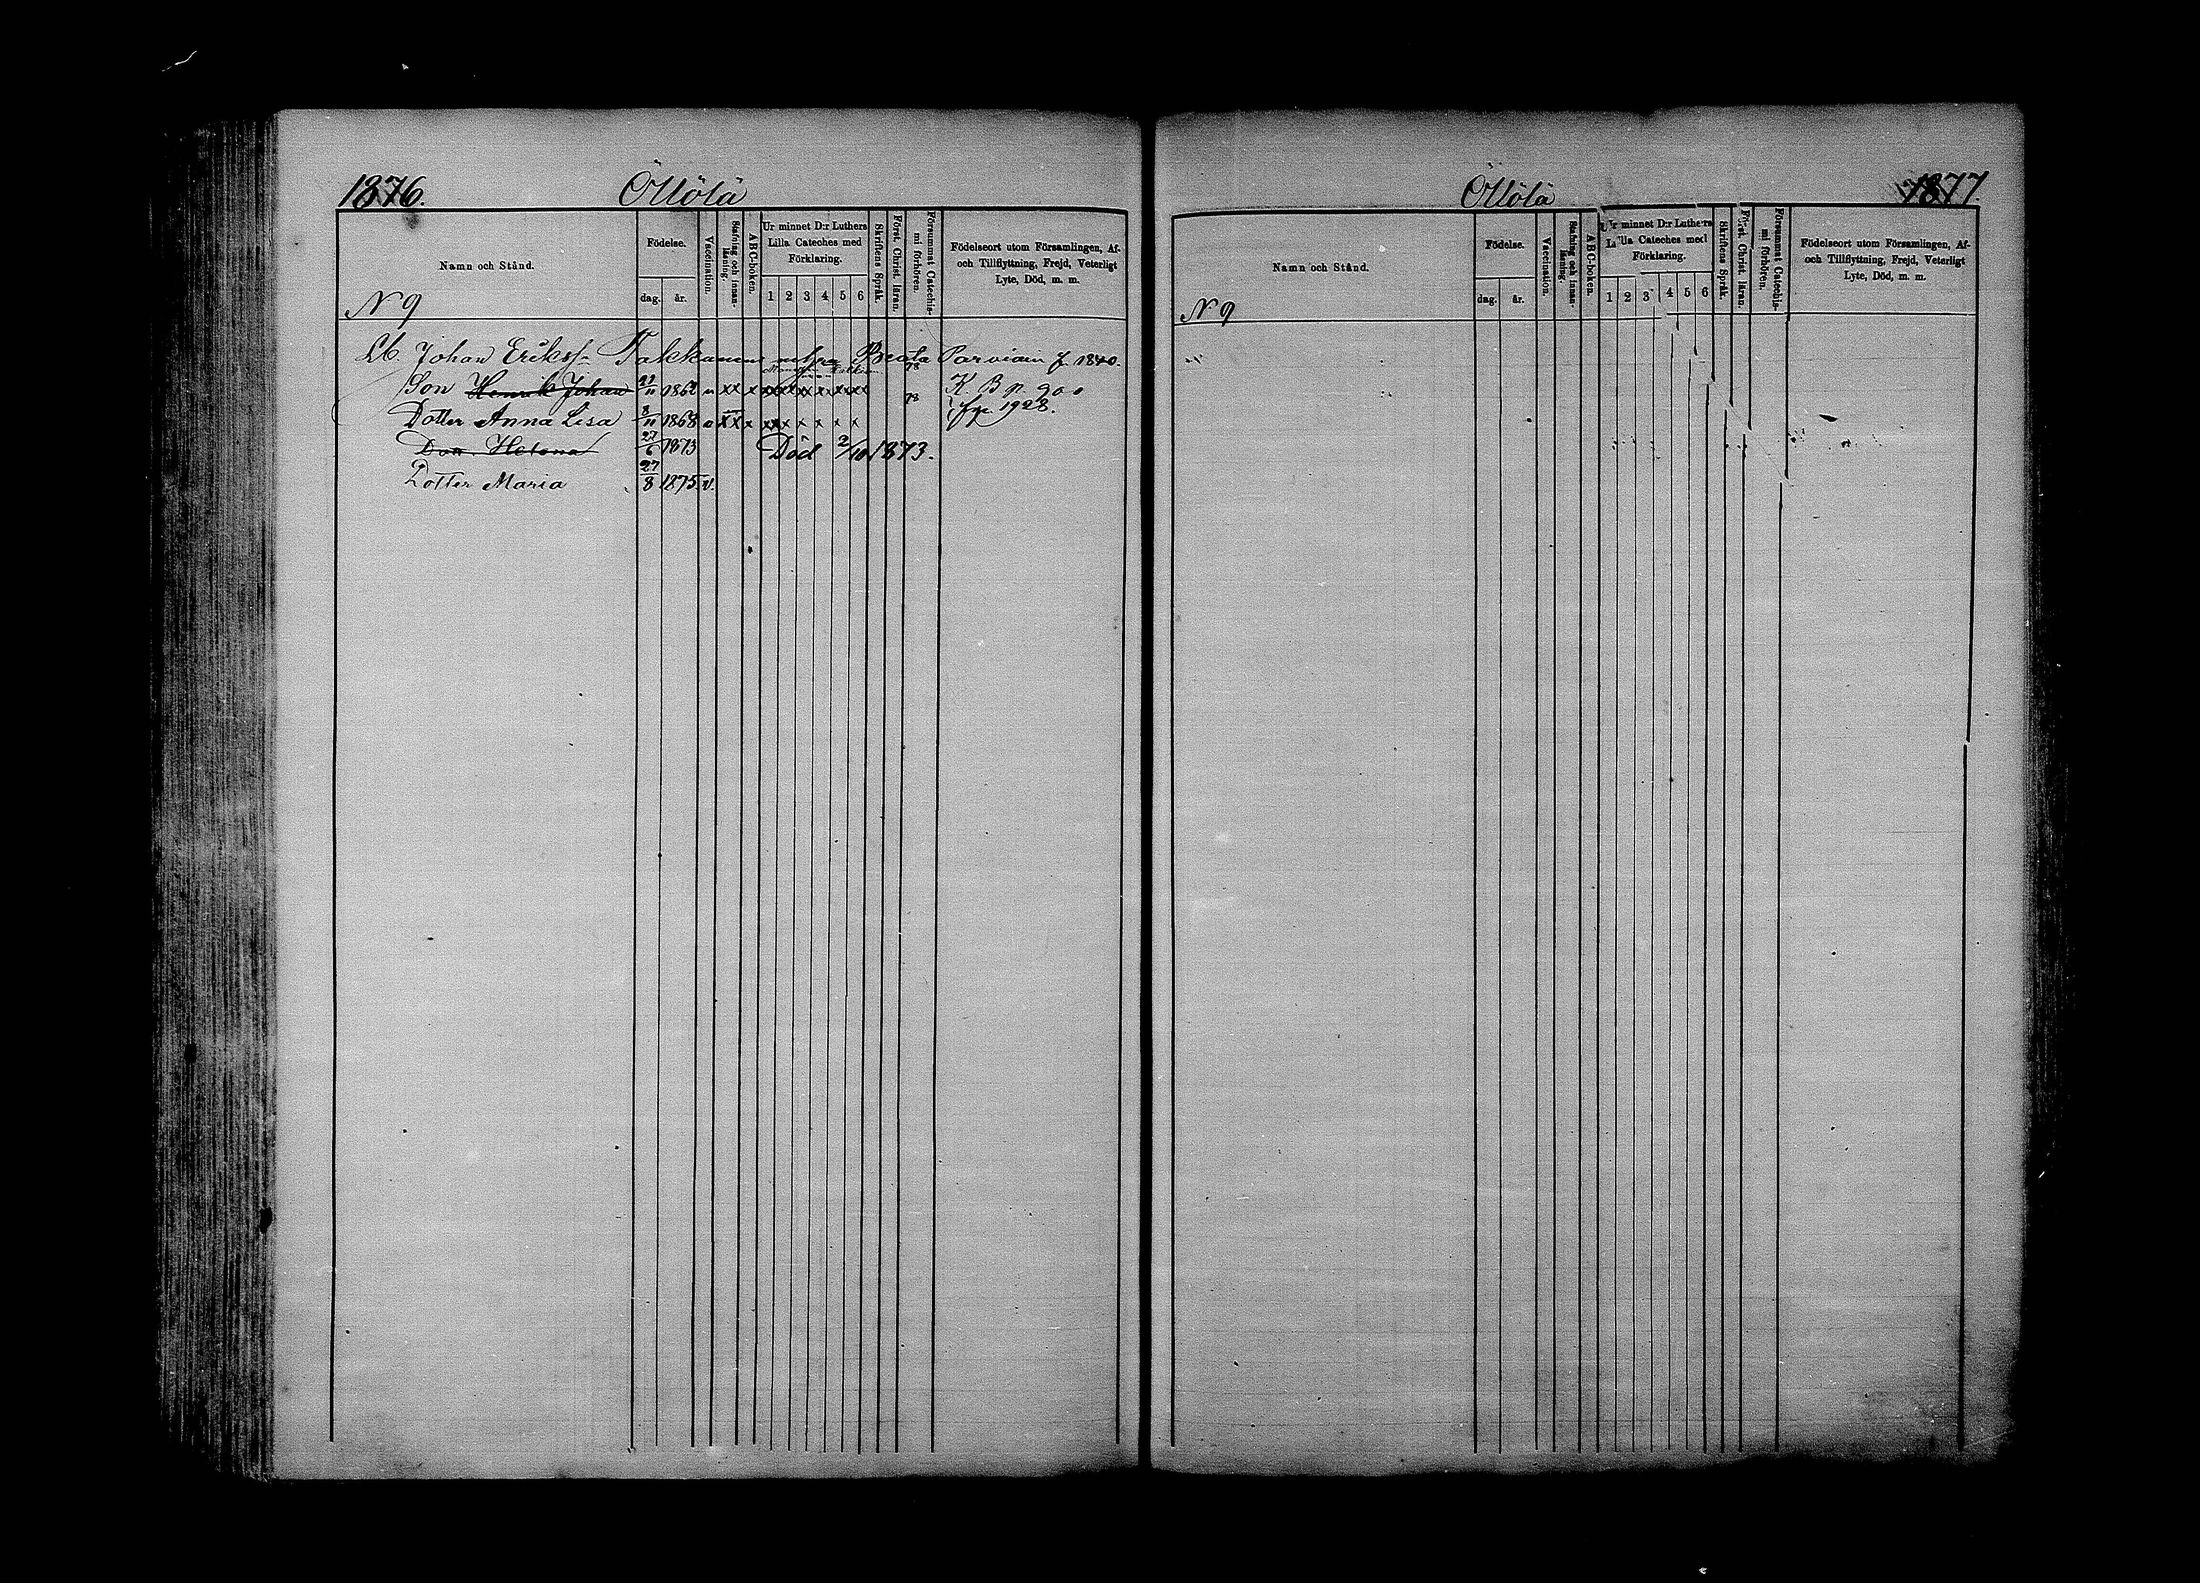 1876.
Ollölä
Namn och Stånd.
Födelse.
dag.
år.
Vaccination.
Stafning och innanläsning.
ABC-boken.
Ur minnet D:r Luthers
Lilla Cateches med
Förklaring.
1 2 3 4 5 6
Skriftens Språk.
Först. Christ. läran.
Försummat Catechismi förhören.
Födelseort utom Församlingen, Af-
och Tillflyttning, Frejd, Veterligt
Lyte, Död, m. m.
N 9
Lb. Johan Erikss. Beata Parviain f. 1840.
Son Henrik Johan 1862 v xx x 78 K. B. p. 900
Dotter Anna Lisa 8/11 1868 v xx x xx x x x x x 78 fp. 1928.
Dott. Helena 27/6 1873 Död 2/10 1873.
Dotter Maria 27/8 1875 v.
1877.
Ollölä
Namn och Stånd.
Födelse.
dag.
år.
Vaccination.
Stafning och innanläsning.
ABC-boken.
Ur minnet D:r Luthers
Lilla Cateches med
Förklaring.
1 2 3 4 5 6
Skriftens Språk.
Först. Christ. läran.
Försummat Catechismi förhören.
Födelseort utom Församlingen, Af-
och Tillflyttning, Frejd, Veterligt
Lyte, Död, m. m.
N 9